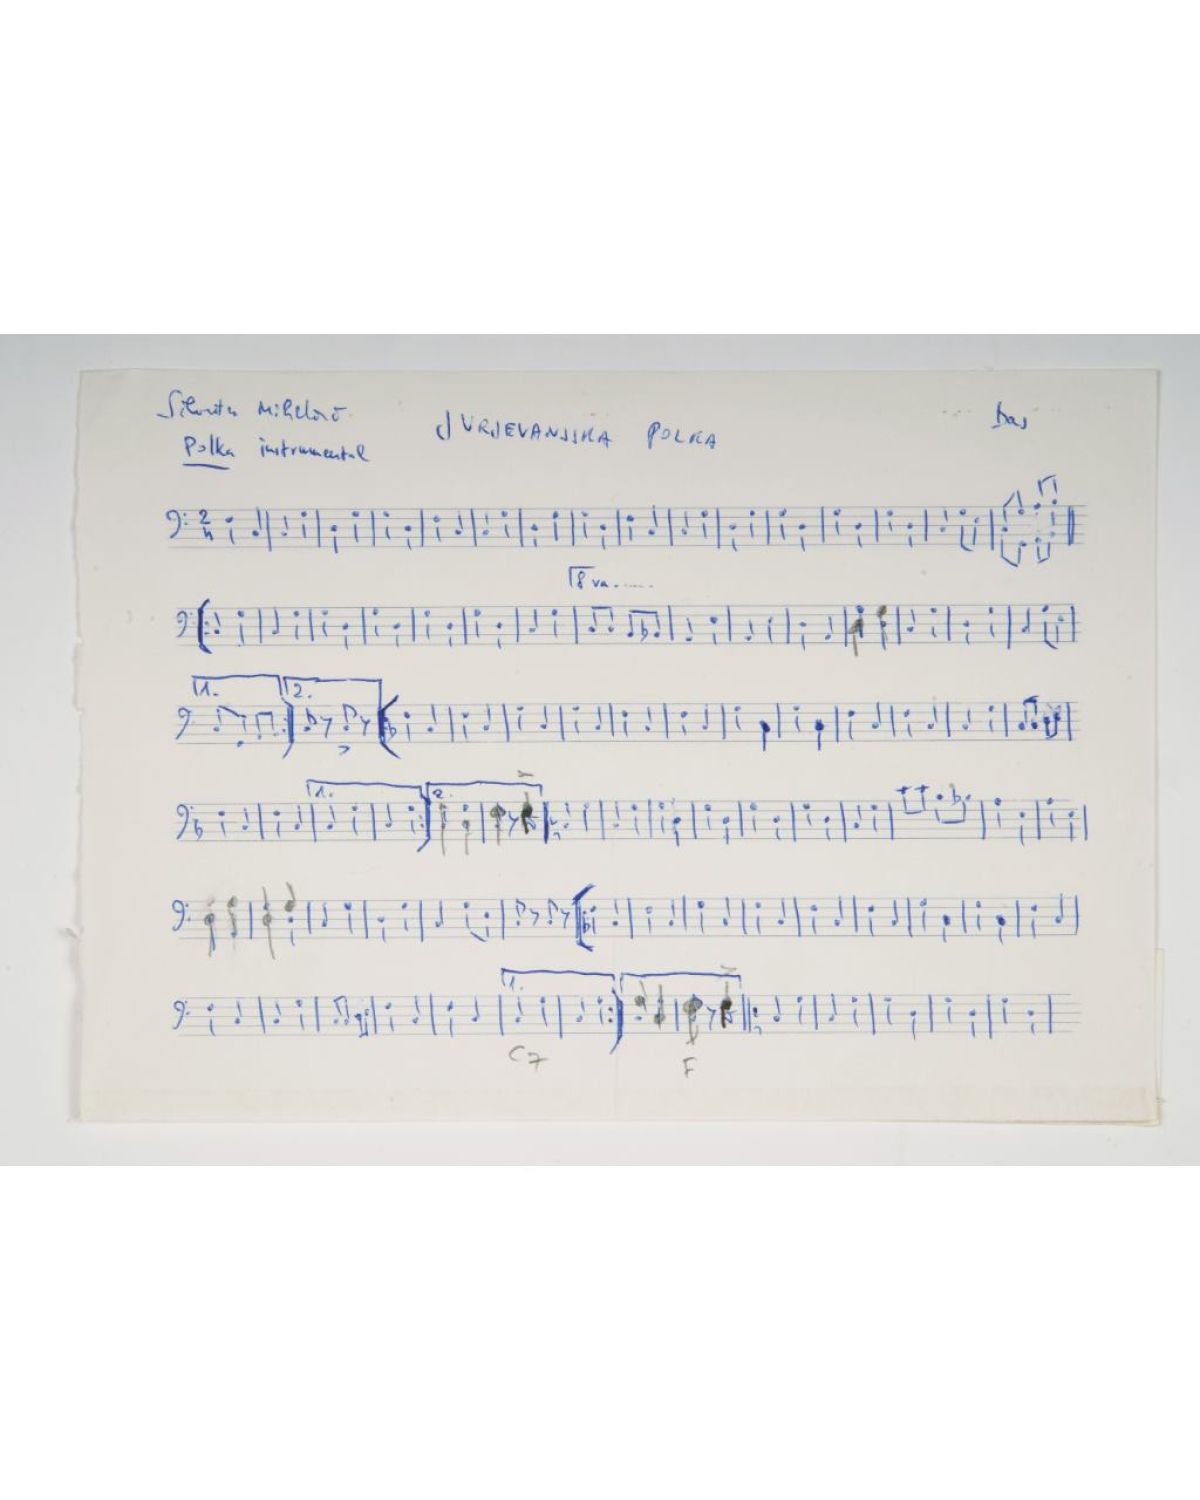 Mihelčič
Polka instrumental
JURJEVANJSKA POLKA
Bas
2
4
8va......
1.
2.
1.
2.
1.
C7
F